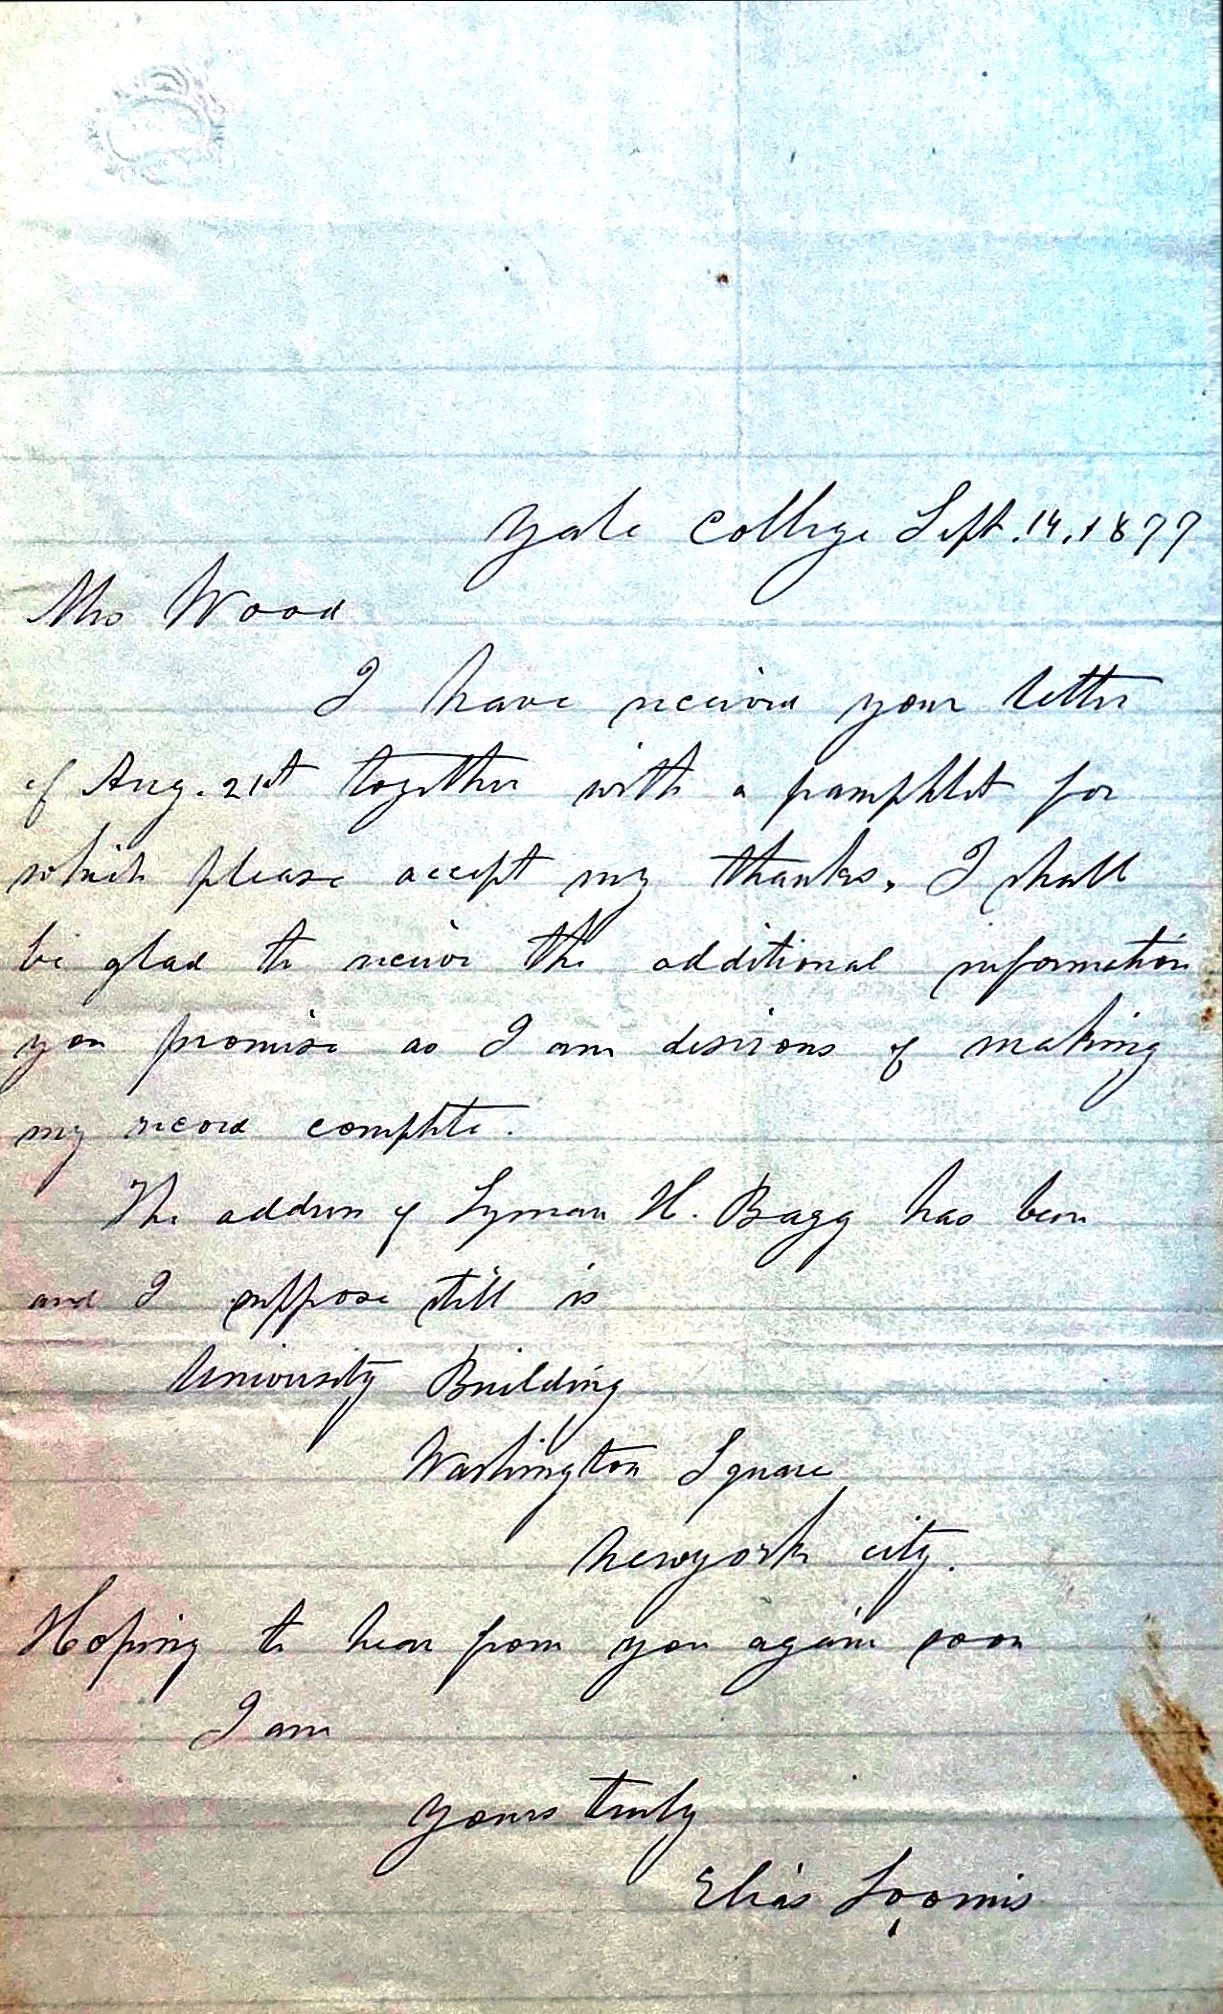 Yale College Sept. 14, 1877
Mrs Wood
I have received your letter
of Aug. 21st together with a pamphlet for
which please accept my thanks. I shall
be glad to receive the additional information
you promise as I am desirous of making
my record complete.
The address of Lyman H. Bagg has been
and I suppose still is
University Building
Washington Square
New york city.
Hoping to hear from you again soon
I am
Yours truly
Elias Loomis